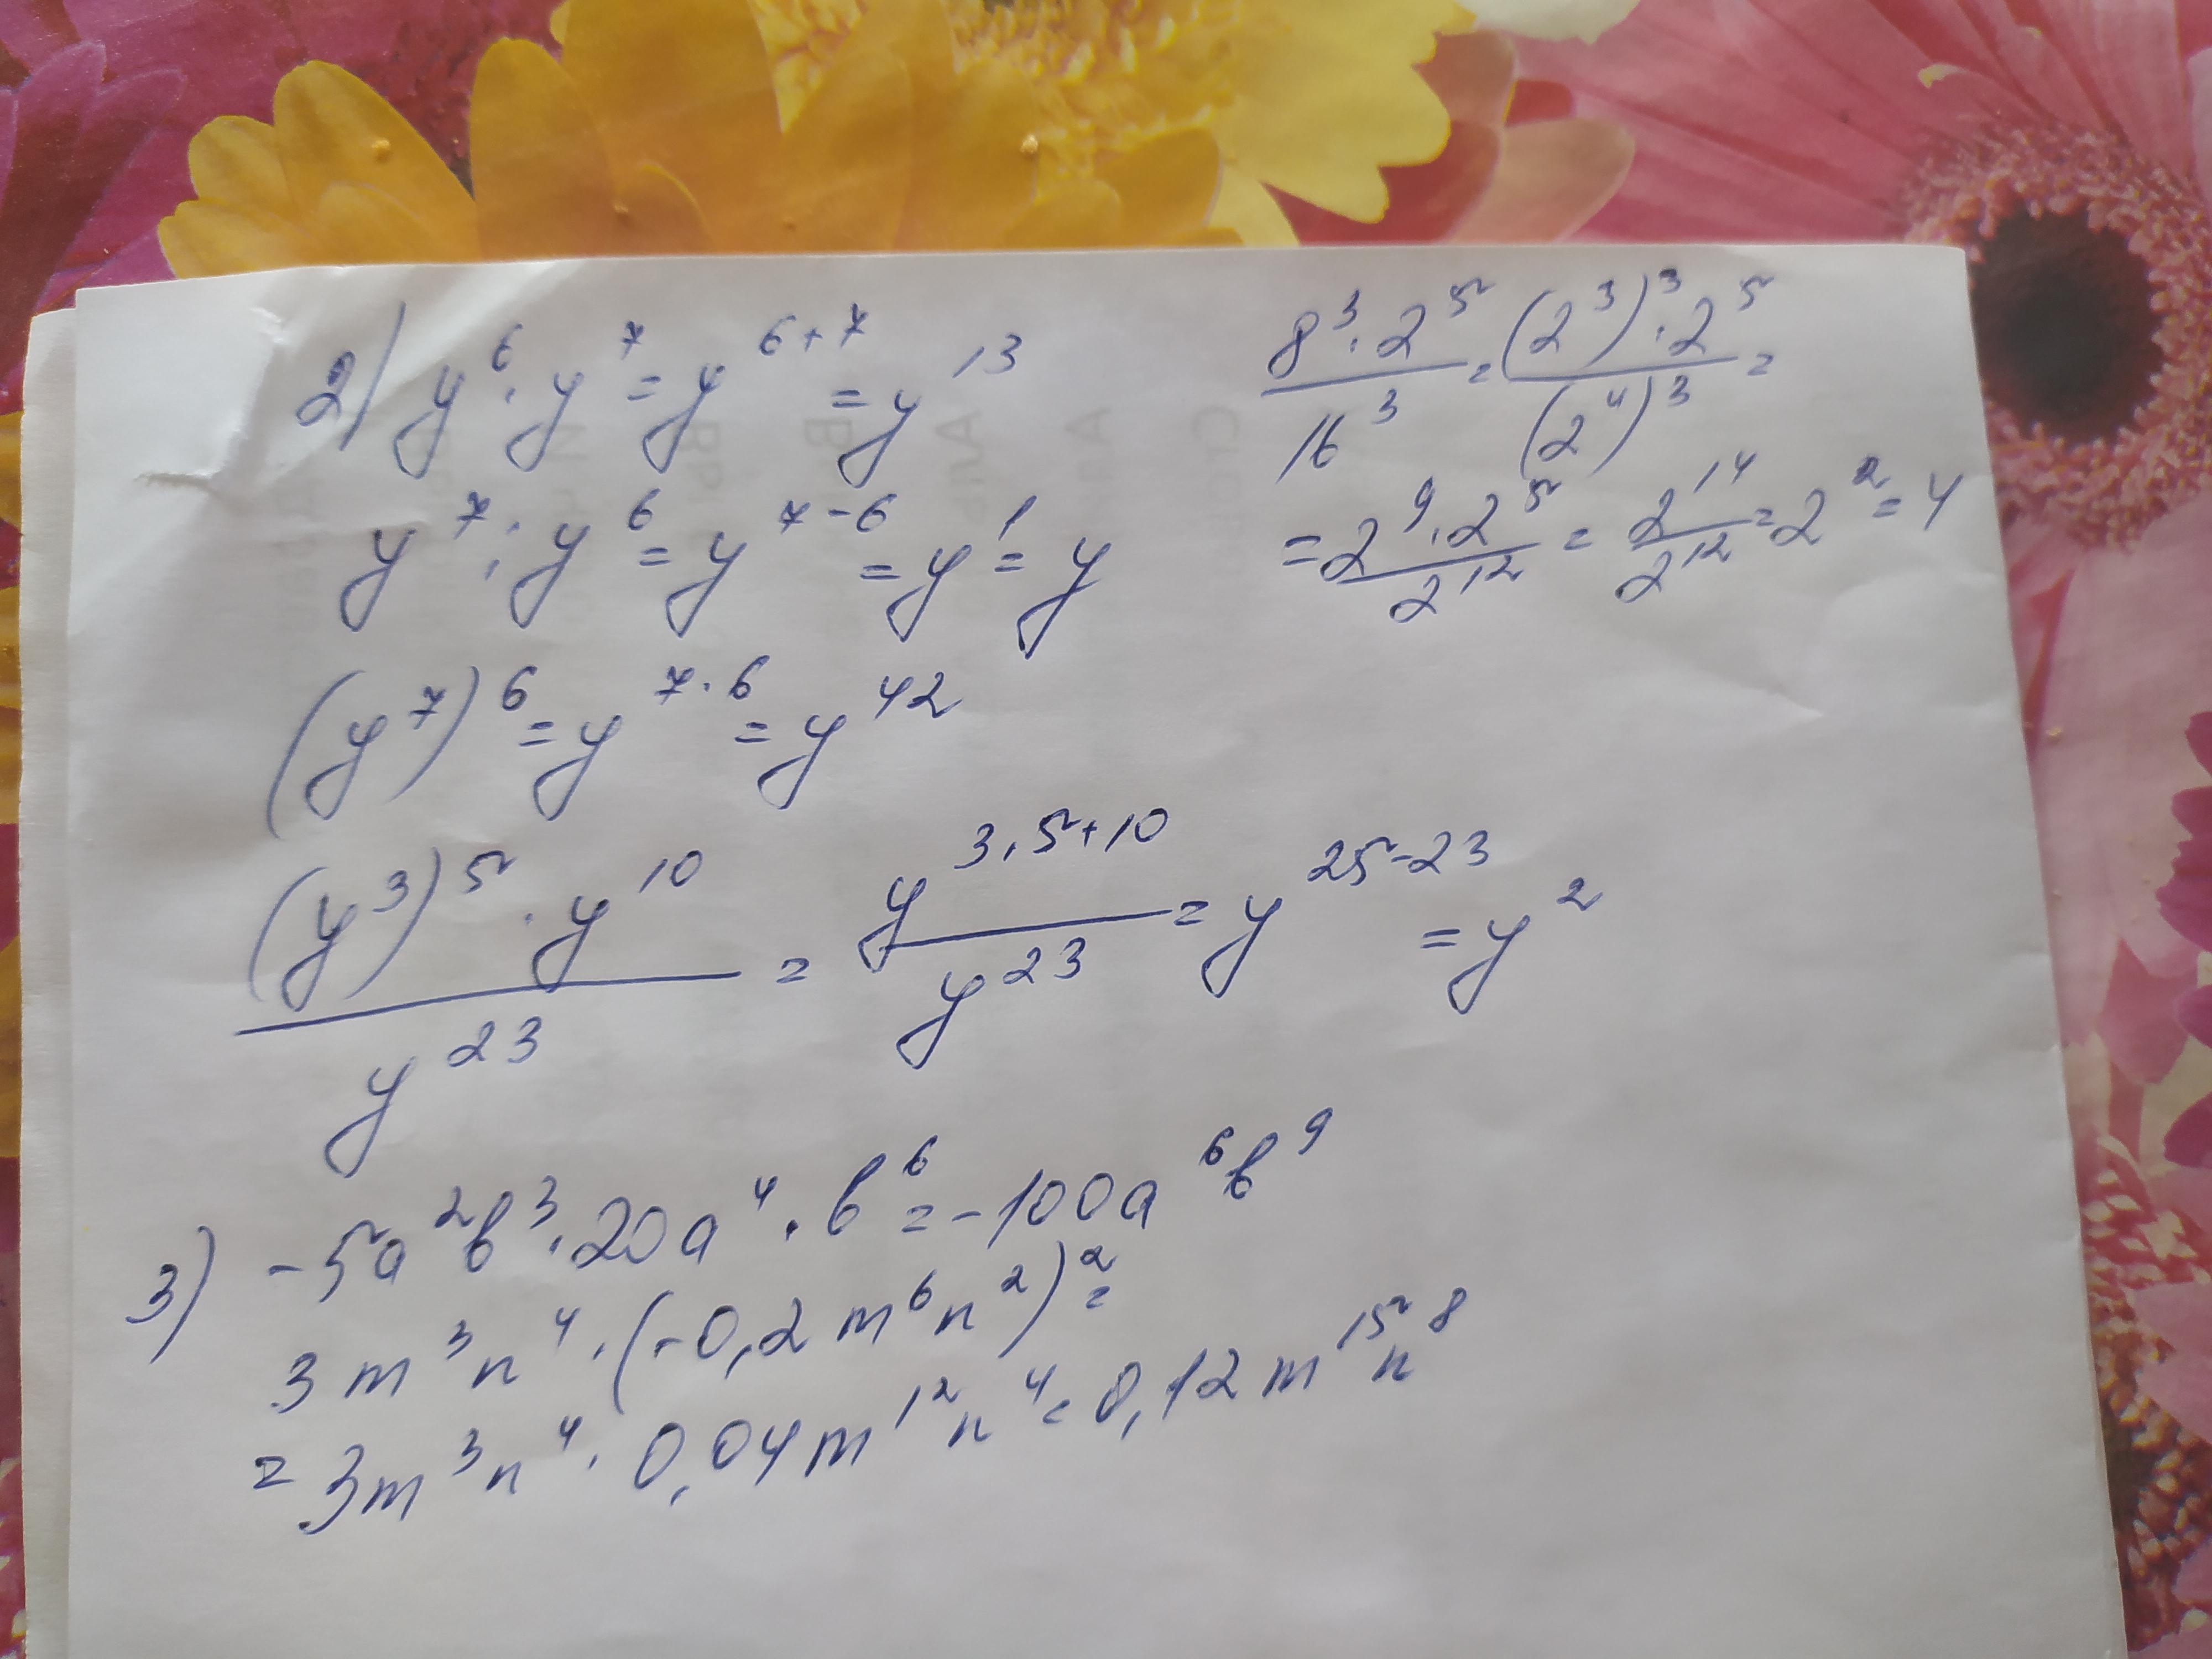 2) y⁶ · y⁷ = y⁶⁺⁷ = y¹³
y⁷ : y⁶ = y⁷⁻⁶ = y¹ = y
(y⁷)⁶ = y⁷·⁶ = y⁴²
(y³)⁵ · y¹⁰ / y²³ = y³·⁵⁺¹⁰ / y²³ = y²⁵⁻²³ = y²
8³ · 2⁵ / 16³ = (2³)³ · 2⁵ / (2⁴)³ =
= 2⁹ · 2⁵ / 2¹² = 2¹⁴ / 2¹² = 2² = 4
3) -5a²b³ · 20a⁴ · b⁶ = -100a⁶b⁹
3m³n⁴ · (-0,2m⁶n²)² =
= 3m³n⁴ · 0,04m¹²n⁴ = 0,12m¹⁵n⁸